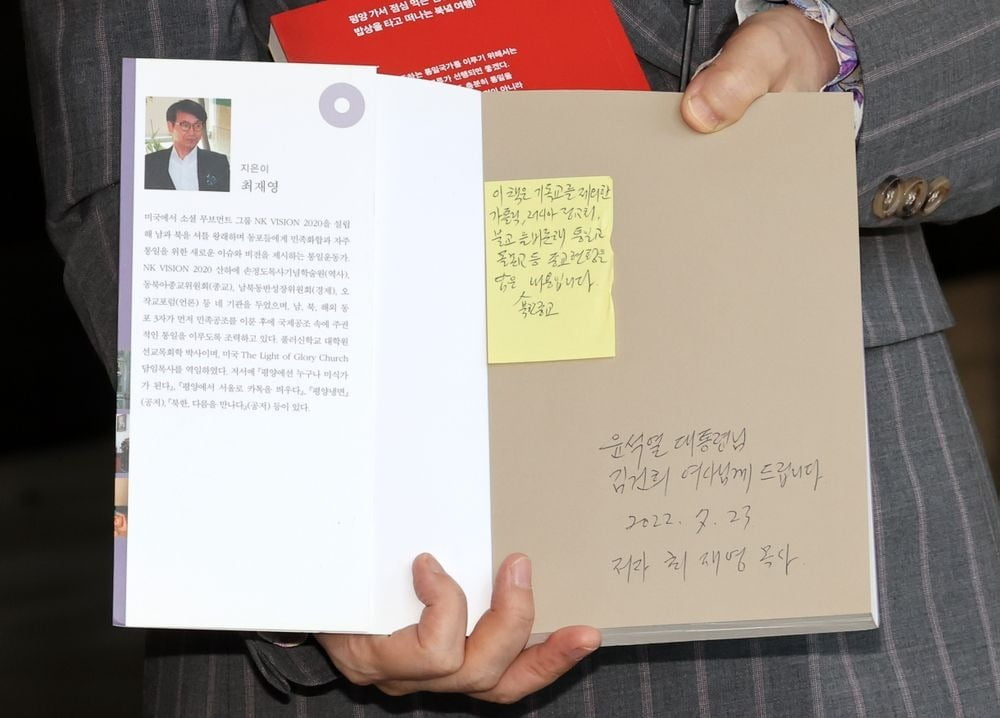 평양 가서 점심 먹는
밥상을 타고 떠나는 북녘 여행!
하는 통일국가를 이루기 위해서는
선행되면 좋겠다.
충분히 통일을
아니라
지은이
최재영
미국에서 소셜 무브먼트 그룹 NK VISION 2020을 설립
해 남과 북을 서틀 왕래하며 동포들에게 민족화합과 자주
통일을 위한 새로운 이슈와 비전을 제시하는 통일운동가.
NK VISION 2020 산하에 손정도목사기념학술원(역사),
동북아종교위원회(종교), 남북동반성장위원회(경제), 오
작교포럼(언론) 등 네 기관을 두었으며, 남, 북, 해외 동
포 3자가 먼저 민족공조를 이룬 후에 국제공조 속에 주권
적인 통일을 이루도록 조력하고 있다. 풀러신학교 대학원
선교목회학 박사이며, 미국 The Light of Glory Church
담임목사를 역임하였다. 저서에 『평양에선 누구나 미식가
가 된다』, 『평양에서 서울로 카톡을 띄우다』, 『평양냉면』
(공저), 『북한, 다름을 만나다』(공저) 등이 있다.
이 책은 기독교를 제외한
가톨릭, 러시아 정교회,
불교
등 종교
내용입니다.
북한종교
윤석열 대통령님
김건희 여사님께 드립니다
2022. 7. 23
저자 최재영 목사